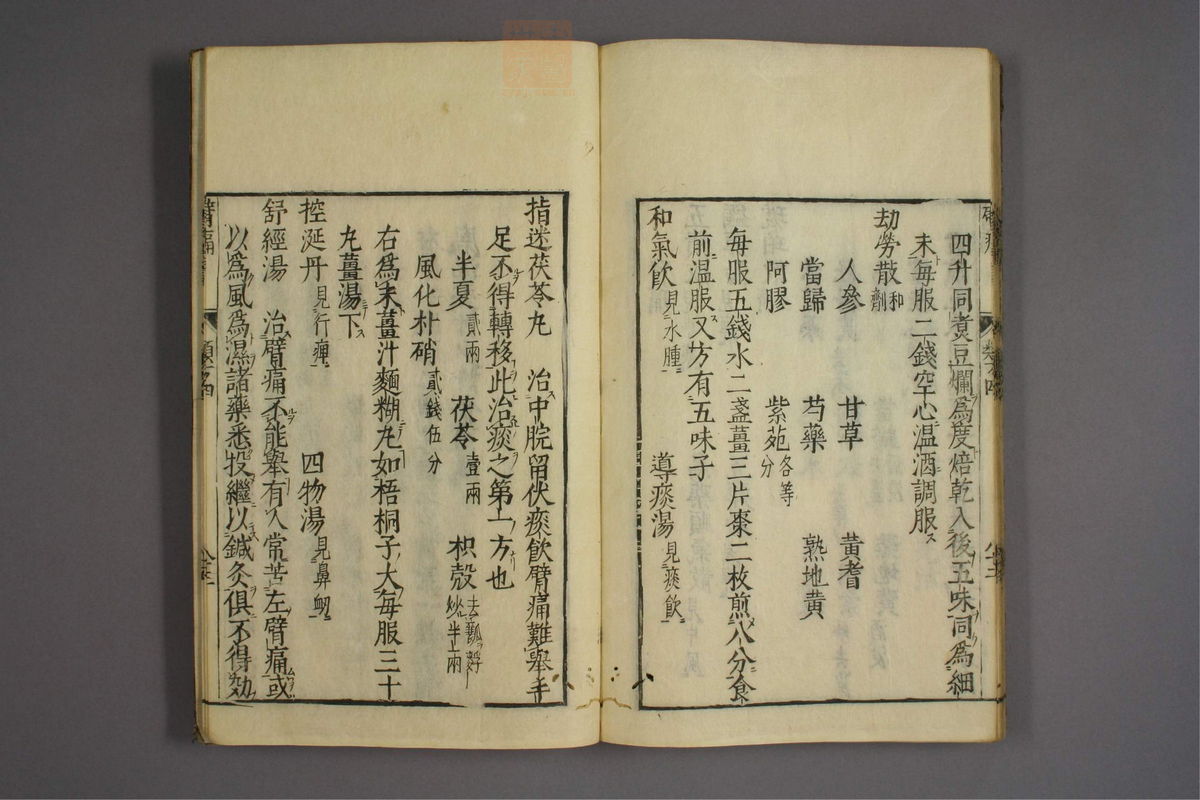 四升同煮豆爛爲度焙乾入後五味同爲細
末每服二錢空心温酒調服
劫勞散和劑
人參 甘草 黃耆
當歸 芍藥 熟地黃
阿膠 紫苑各等分
每服五錢水二盞薑三片棗二枚煎八分食
前温服又方有五味子
和氣飲見水腫 導痰湯見痰飲
指迷茯苓丸 治中脘留伏痰飲臂痛難舉手
足不得轉移此治痰之第一方也
半夏貳兩 茯苓壹兩 枳殼去瓤麩炒半兩
風化朴硝貳錢伍分
右爲末薑汁麵糊丸如梧桐子大每服三十
丸薑湯下
控涎丹見行痺 四物湯見鼻衂
舒經湯 治臂痛不能舉有人常苦左臂痛或
以爲風爲濕諸藥悉投繼以鍼灸俱不得効